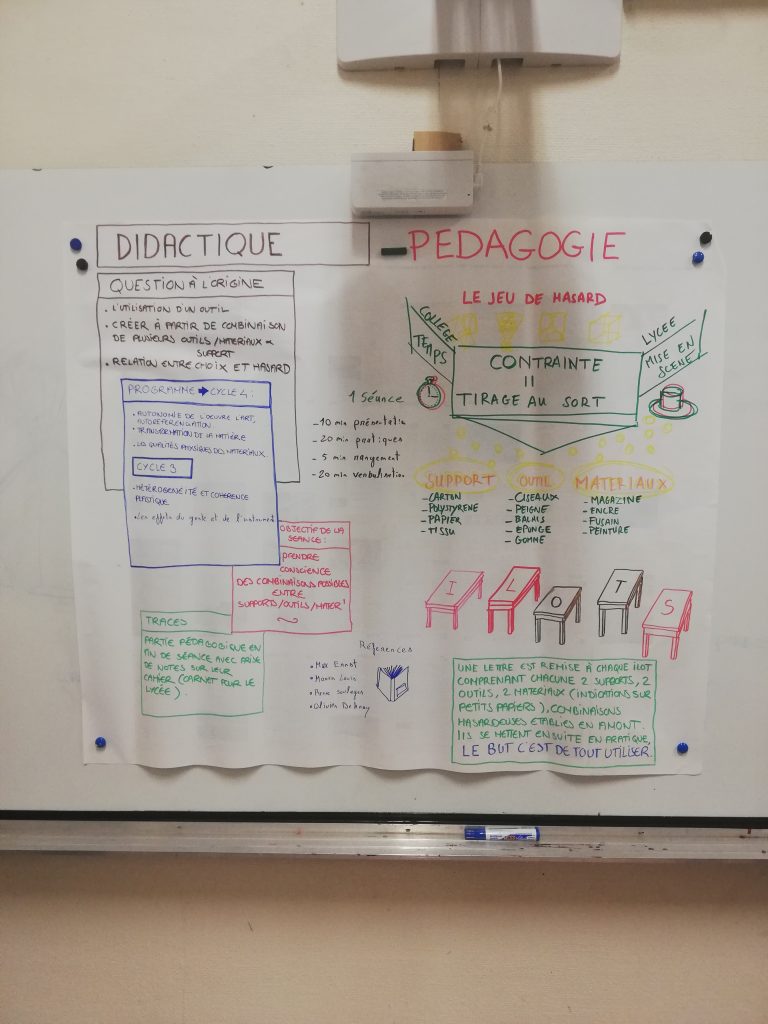 DIDACTIQUE
QUESTION À L'ORIGINE
• L'UTILISATION D'UN OUTIL
• CRÉER À PARTIR DE COMBINAISON
DE PLUSIEURS OUTILS/MATERIAUX
SUPPORT
• RELATION ENTRE CHOIX ET HASARD
PROGRAMME CYCLE 4 :
• AUTONOMIE DE L'OEUVRE D'ART,
AUTOREFERENCIATION
• TRANSFORMATION DE LA MATIÈRE
• LES QUALITÉS PHYSIBLES DES MATERIAUX.
CYCLE 3
• HÉTÉROGENEITÉ ET COHERENCE
PLASTIQUE.
• Les effets du geste et de l'instrument
OBJECTIF DE LA
SEANCE :
PRENDRE
CONSCIENCE
DES COMBINAISONS POSSIBLES
ENTRE
SUPPORTS/OUTILS/MATER
TRACES
PARTIE PÉDAGOGIQUE EN
FIN DE SÉANCE AVEC PRISE
DE NOTES SUR LEUR
CAHIER (CARNET POUR LE
LYCÉE).
1 Séance
- 10 min présentation
- 20 min pratiques
- 5 min rangement
- 20 min verbalisation
Références
• Max Ernst
• Morris Louis
• Pierre soulages
• Olivier Debray
PEDAGOGIE
LE JEU DE HASARD
COLLEGE
TEMPS
LYCEE
MISE EN
SCENE
CONTRAINTE
=
TIRAGE AU SORT
SUPPORT
- CARTON
- POLYSTYRENE
- PAPIER
- TISSU
OUTIL
- CISEAUX
- PEIGNE
- BALAIS
- EPONGE
- GOMME
MATERIAUX
- MAGAZINE
- ENCRE
- FUSAIN
- PEINTURE
I L O T S
UNE LETTRE EST REMISE À CHAQUE ILOT
COMPRENANT CHACUNE 2 SUPPORTS, 2
OUTILS, 2 MATERIAUX (INDICATIONS SUR
PETITS PAPIERS), COMBINAISONS
HASARDEUSES ETABLIES EN AMONT.
ILS SE METTENT ENSUITE EN PRATIQUE,
LE BUT C'EST DE TOUT UTILISER.